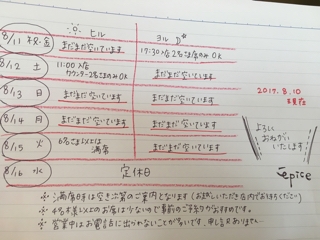 ヒル
ヨル
8/11 祝・金 まだまだ空いています 17:30入店2名さま席のみOK
8/12 土 11:00入店 カウンター2名さまのみOK まだまだ空いています
8/13 日 まだまだ空いています まだまだ空いています
8/14 月 まだまだ空いています まだまだ空いています
8/15 火 満席 まだまだ空いています
8/16 水 定休日
2017.8.10 現在
よろしく
おねがい
いたします
epice
※満席時は空き次第のご案内となります
※4名さま以上のお席は少ないので事前のご予約がおすすめです。
※営業中はお電話に出られないことが多いです。申し訳ありません。